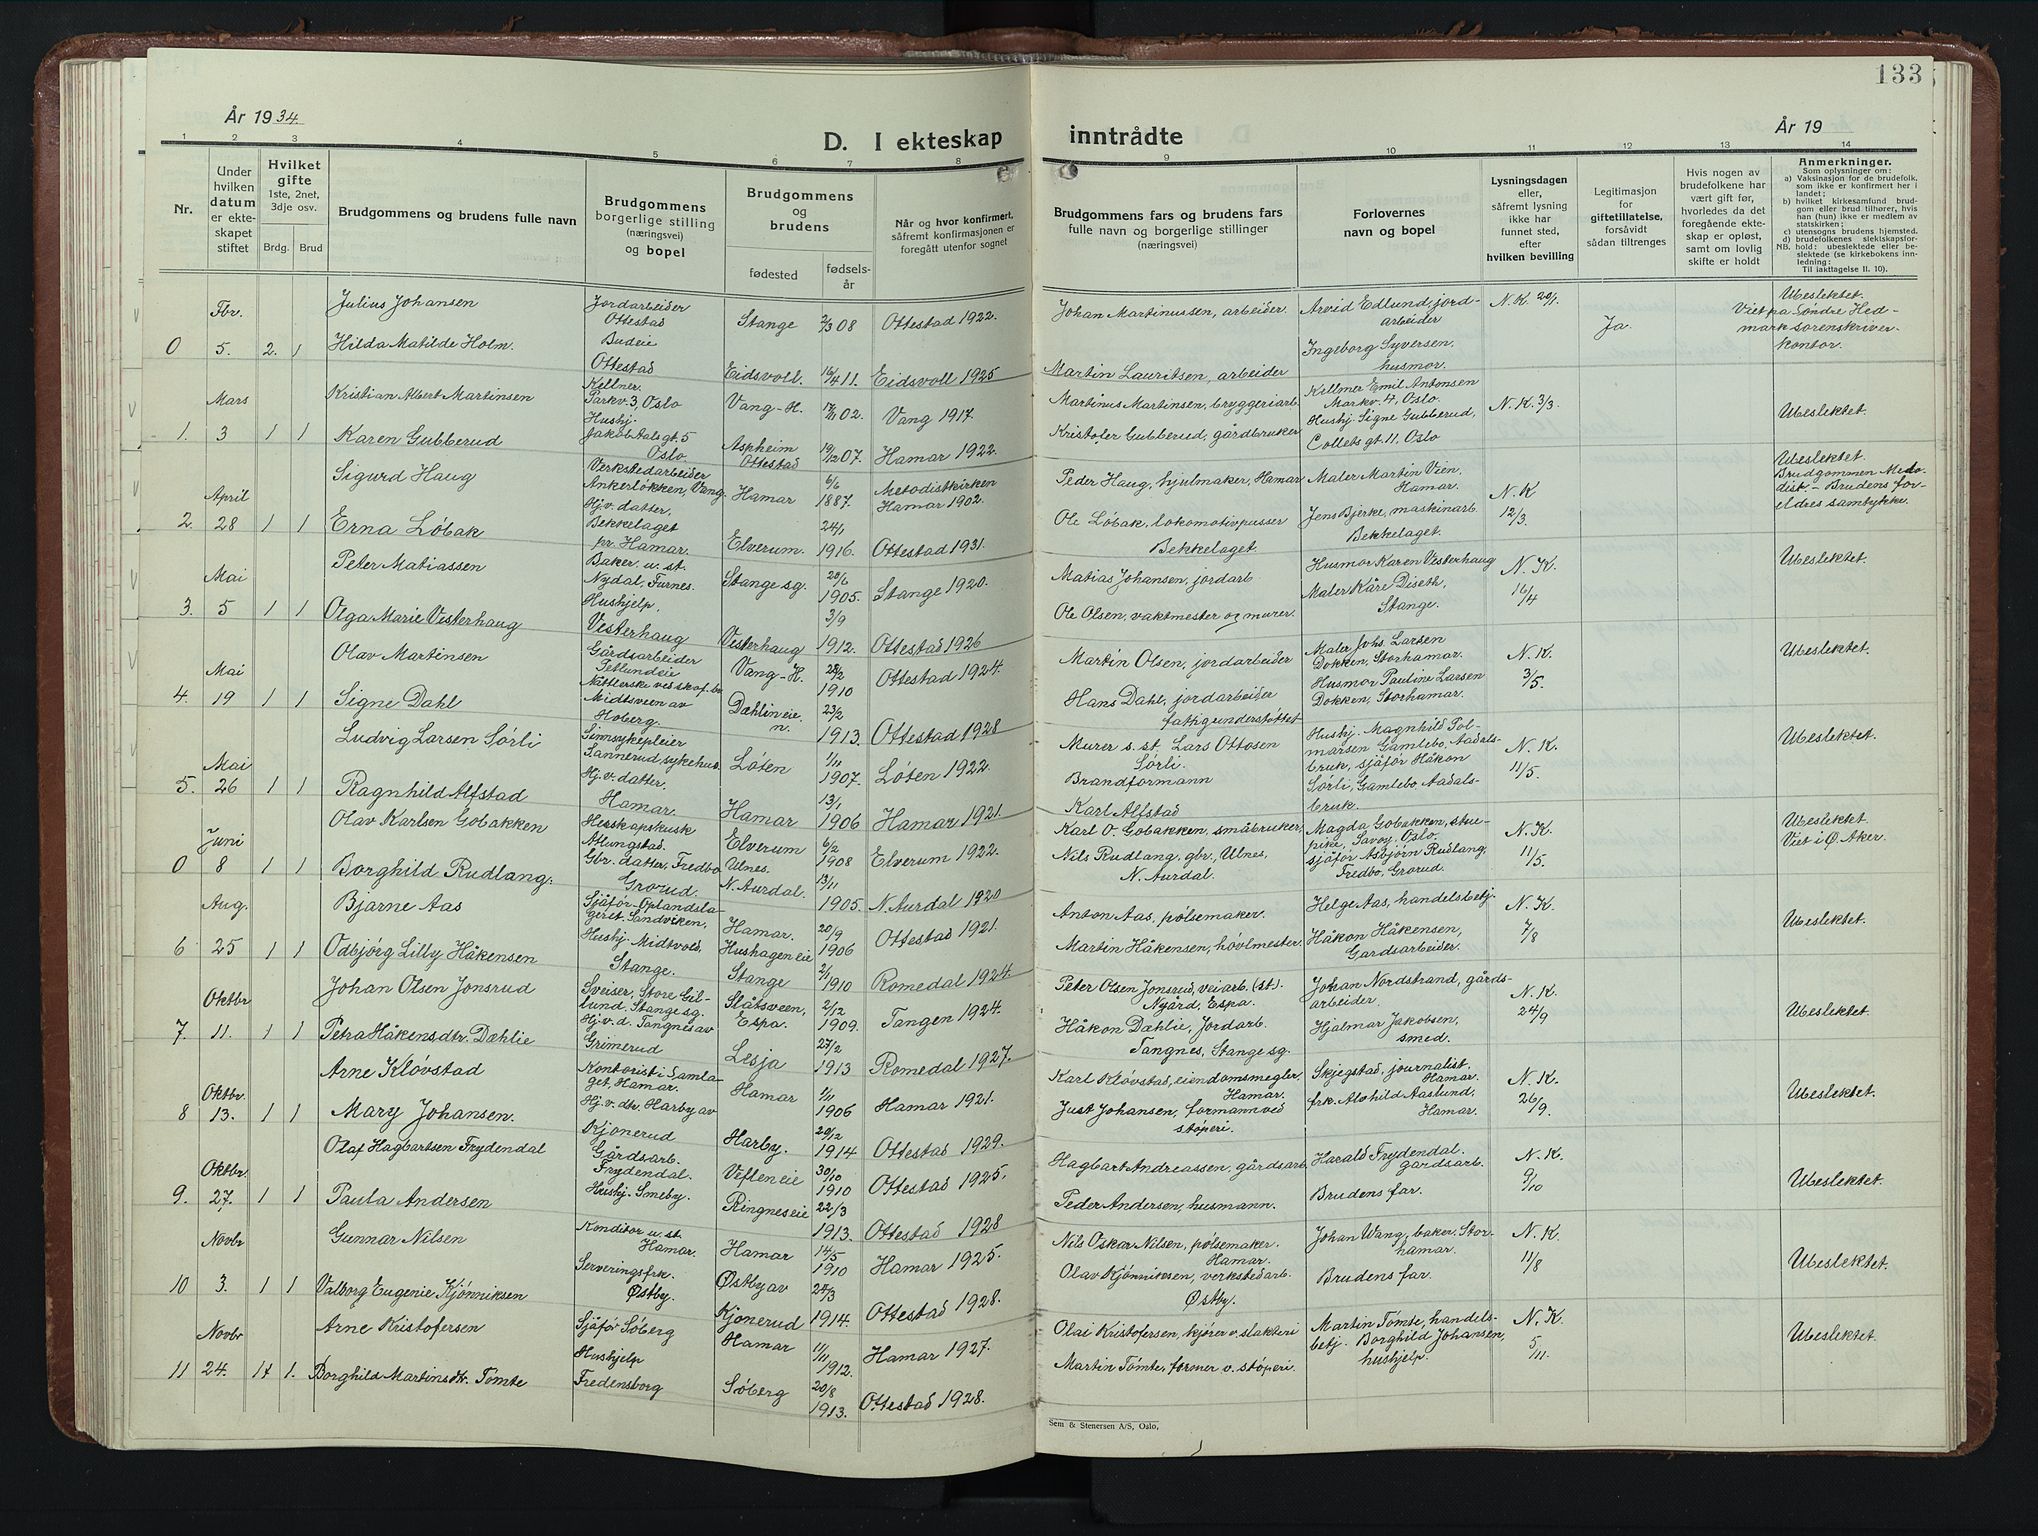 133
År 1934.
D. I ekteskap inntrådte
År 19
1 2 3 4 5 6 7 8 9 10 11 12 13 14
Nr.
Under hvilken datum er ekteskapet stiftet
Hvilket gifte 1ste, 2net, 3dje osv.
Brdg. Brud
Brudgommens og brudens fulle navn
Brudgommens borgerlige stilling (næringsvei) og bopel
Brudgommens og brudens
fødested
fødselsår
Når og hvor konfirmert, såfremt konfirmasjonen er foregått utenfor sognet
Brudgommens fars og brudens fars fulle navn og borgerlige stillinger (næringsvei)
Forlovernes navn og bopel
Lysningsdagen eller, såfremt lysning ikke har funnet sted, efter hvilken bevilling
Legitimasjon for giftetillatelse, forsåvidt sådan tiltrenges
Hvis nogen av brudefolkene har vært gift før, hvorledes da det foregående ekteskap er opløst, samt om lovlig skifte er holdt
Anmerkninger.
Som oplysninger om:
a) Vaksinasjon for de brudefolk. som ikke er konfirmert her i landet;
b) hvilket kirkesamfund brudgom eller brud tilhører, hvis han (hun) ikke er medlem av statskirken;
c) utensogns brudens hjemsted.
d) brudefolkenes slekskapsforhold: ubeslektede eller beslektede (se kirkebokens innledning:
NB. Til iakttagelse II. 10).
0 Fbr. 5. 2. 1
Julius Johansen
Jordarbeider Ottestad
Stange 2/3 08 Ottestad 1922.
Johan Martinussen, arbeider
Arvid Edlund, jordarbeider
N.K. 20/1.
Ja.
Ubeslektet. Viet pa Søndre Hedmark sorenskriverkontor.
Hilda Matilde Holm.
Budeie Ottestad
Eidsvoll. 16/4 11. Eidsvoll 1925
Martin Lauritsen, arbeider
Ingeborg Syversen, husmor.
1. Mars 3 1 1
Kristian Albert Martinsen
Kellner. Parkv. 3, Oslo
Vang-H. 02. Vang 1917.
Martinus Martinsen, bryggeriarb.
Kellner Emil Antonsen Markv. 4, Oslo.
N.K. 3/3.
Ubeslektet.
Karen Gubberud
Hushj. Jakob Aalsgt. 5 Oslo.
Aspheim Ottestad 19/12 07. Hamar 1922.
Kristofer Gubberud, gårdbruker
Hushj. Signe Gubberud, Collets gt. 11, Oslo
2. April 28 1 1
Sigurd Haug
Verkstedarbeider Ankerløkken, Vang
Hamar 6/6 1887. Metodistkirken Hamar 1902.
Peder Haug, hjulmaker, Hamar
Maler Martin Vien, Hamar.
N.K 12/3.
Ubeslektet. Brudgommen Metodist - Brudens foreldres samtykke.
Erna Løbak
Hj.v. datter, Bekkelaget pr. Hamar.
Elverum. 24/1 1916. Ottestad 1931.
Ole Løbak, lokomotivpusser Bekkelaget.
Jens Bjerke, maskinarb. Bekkelaget.
3. Mai 5 1 1
Peter Matiassen
Baker. u. st. Nydal, Furnes.
Stange sg. 28/6 1905. Stange 1920.
Matias Johansen, jordarb.
Husmor Karen Vesterhaug
N.K. 16/4
Ubeslektet.
Olga Marie Vesterhaug
Hushjelp, Vesterhaug
Vesterhaug 3/9 1912. Ottestad 1926
Ole Olsen, vaktmester og murer.
Maler Kåre Diseth, Stange.
4. Mai 19 1 1
Olav Martinsen
Gårdsarbeider Petlundeie
Vang-H. 25/2 1910 Ottestad 1924
Martin Olsen, jordarbeider
Maler Johs. Larsen Dokken, Storhamar.
N.K. 3/5.
Ubeslektet.
Signe Dahl
Nåtlerske ved skofabr. Midtsveen av Hoberg.
Dæhlineie n. 23/2 1913. Ottestad 1928
Hans Dahl, jordarbeider fattigunderstøttet
Husmor Pauline Larsen Dokken, Storhamar.
5. Mai 26 1 1
Ludvig Larsen Sørli
Sinnsykepleier Sannerud sykehus.
Løten 1/11 1907. Løten 1922.
Murer s. st. Lars Ottosen Sørli.
Hushj. Magnhild Tolmarsen Gamlebo, Aadalsbruk, sjåfør Håkon Sørli, Gamlebo, Aadalsbruk.
N.K. 11/5.
Ubeslektet.
Ragnhild Alfstad
Hj.v. datter, Hamar.
Hamar 13/1 1906 Hamar 1921.
Brandformann Karl Alfstad
0 Juni 8 1 1
Olav Karlsen Gobakken
Herskapskusk Atlungstad.
Elverum 6/2 1908 Elverum 1922.
Karl O. Gobakken, småbruker,
Magda Gobakken, stuepike, Savoy, Oslo.
N.K. 11/5.
Ubeslektet Viet i Ø. Aker.
Borghild Rudlang.
Gbr. datter, Fredbo Grorud.
Ulnes. N. Aurdal. 13/11 1905. N. Aurdal 1920
Nils Rudlang, gbr., Ulnes, N. Aurdal.
sjåfør Asbjørn Rudlang, Fredbo, Grorud.
6 Aug. 25 1 1
Bjarne Aas
Sjåfør-Oplandslageret. Sandviken,
Hamar. 20/9 1906 Ottestad 1921.
Anton Aas, pølsemaker.
Helge Aas, handelsbetj.
N.K. 7/8
Ubeslektet.
Odbjørg Lilly Håkensen
Hushj. Midtvold, Stange.
Hushagen eie Stange 2/11 1910 Romedal 1924.
Martin Håkensen, høvlmester
Håkon Håkensen, Gardsarbeider.
7. Oktbr 11. 1 1
Johan Olsen Jonsrud
Sveiser, Store Gillund. Stange sg.
Slåtsveen, Espa. 2/12 1909. Tangen 1924.
Peter Olsen Jonsrud, veiarb. (st). Nygård, Espa.
Johan Nordstrand, gårdsarbeider.
N.K. 24/9
Ubeslektet.
Petra Håkensdtr. Dæhlie
Hj.v.d. Tangnes av Grimerud
Lesja 27/2 1913 Romedal 1927.
Håkon Dæhlie, Jordarb. Tangnes, Stange sg.
Hjalmar Jakobsen, smed.
8 Oktbr. 13. 1 1
Arne Kløvstad
Kontorist i Samlaget, Hamar.
Hamar 1/11 1906 Hamar 1921.
Karl Kløvstad, eiendomsmegler. Hamar.
Skjegstad, journalist, Hamar.
N.K. 26/9.
Ubeslektet.
Mary Johansen.
Hj.v. dtr. Harby av Kjonerud
Harby. 20/12 1914 Ottestad 1929.
Just Johansen, formann ved støperi.
frk. Alvhild Aaslund, Hamar.
9. Oktbr 27. 1 1
Olaf Hagbartsen Frydendal
Gårdsarb. Frydendal.
Viflen eie 30/10 1910 Ottestad 1925.
Hagbart Andreassen, gårdsarb.
Harald Frydendal. gårdsarb.
N.K. 9/10
Ubeslektet.
Paula Andersen
Hushj. Smeby.
Ringneseie 22/3 1913. Ottestad 1928
Peder Andersen, husmann.
Brudens far.
10 Novbr 3. 1 1
Gunnar Nilsen
Konditor u. st. Hamar.
Hamar 14/5 1910 Hamar 1925.
Nils Oskar Nilsen, pølsemaker. Hamar.
Johan Wang, baker. Storhamar.
N.K. 11/8
Ubeslektet.
Valborg Eugenie Kjønniksen
Serveringsfrk. Østby.
Østby av Kjonerud 24/3 1914. Ottestad 1928.
Olav Kjønniksen, verkstedarb. Østby.
Brudens far.
11 Novbr 24. 1 1.
Arne Kristofersen
Sjåfør Søberg
Hamar 11/11 1912. Hamar 1927.
Olai Kristofersen, kjører v. slakteri
Martin Tømte, handelsbetj. Borghild Johansen, hushjelp.
N.K. 5/11.
Ubeslektet.
Borghild Martinsdtr. Tømte
Hushjelp Fredensborg
Søberg 20/8 1913. Ottestad 1928.
Martin Tømte, former v. støperi.
Sem & Stenersen A/S, Oslo,